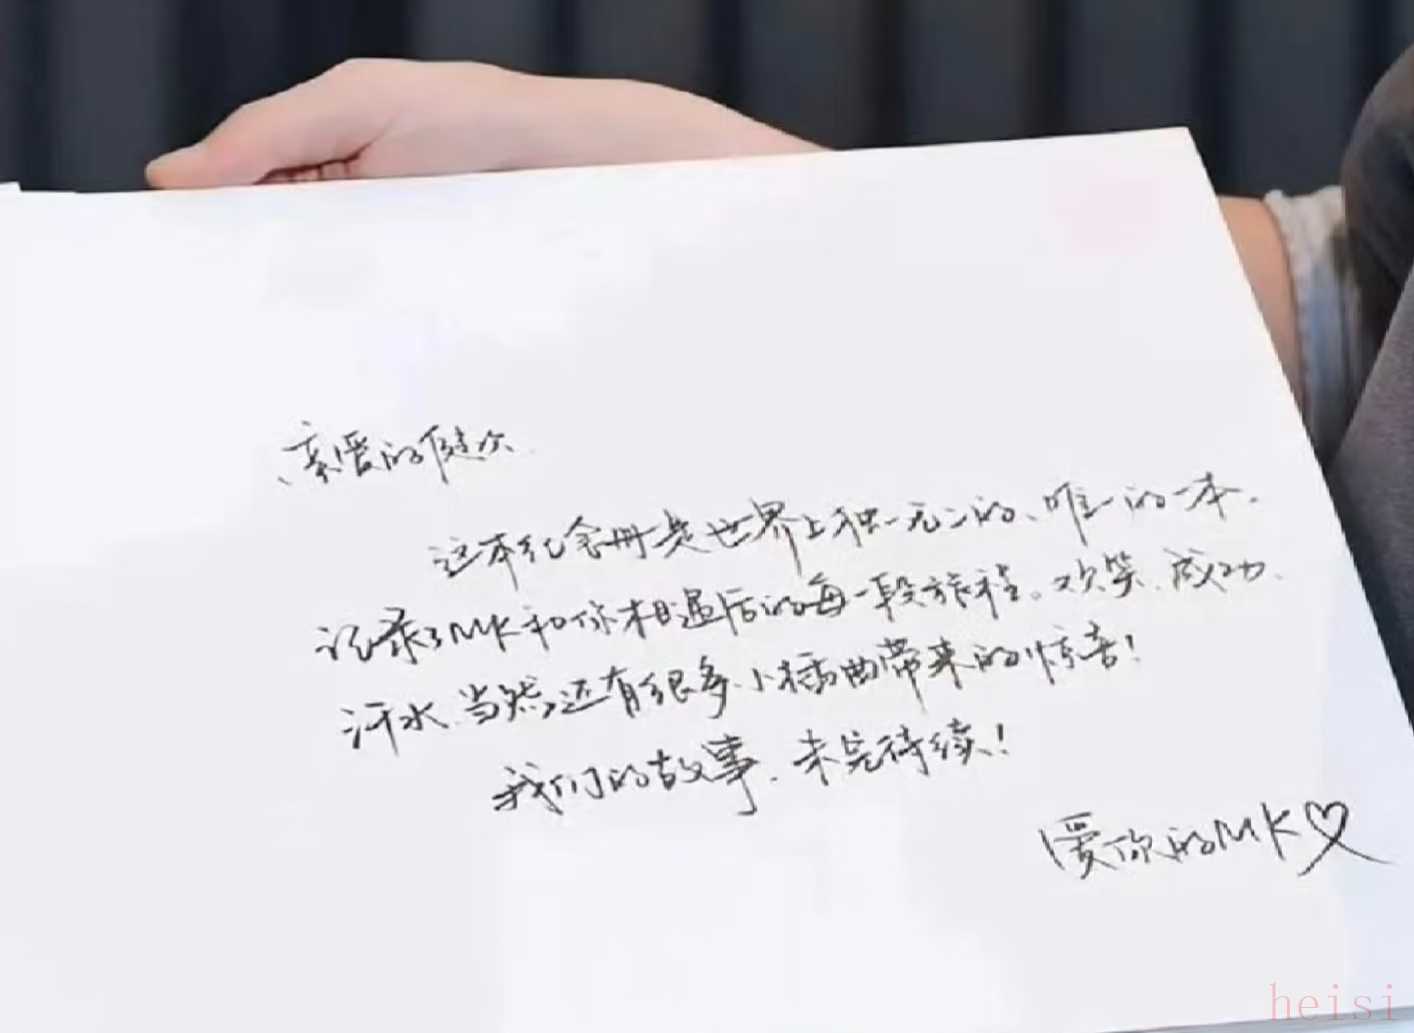 亲爱的健次
这本纪念册是世界上独一无二的、唯一的一本.
记录了MK和你相遇后的每一段旅程。欢笑、成功、
汗水、当然还有很多小插曲带来的惊喜！
我们的故事.未完待续！
爱你的MK♡
heisi